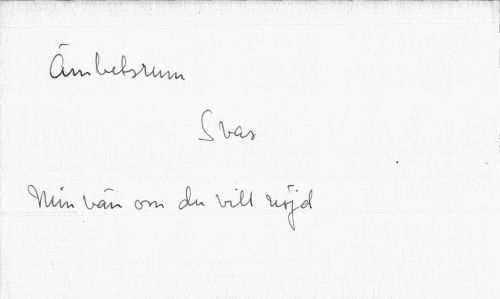 Ämbetsrum
Svar
Min vän om du vill nöjd